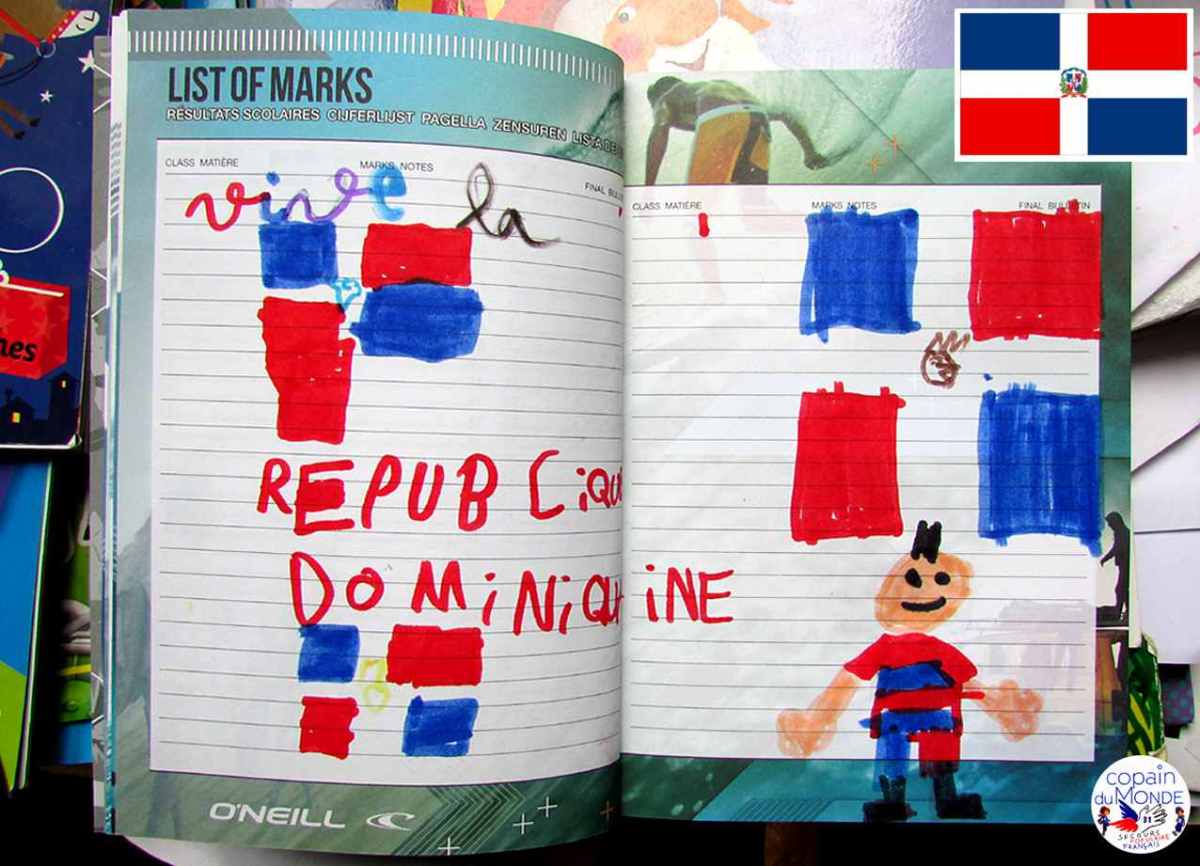 LIST OF MARKS
RÉSULTATS SCOLAIRES CIJFERLIJST PAGELLA ZENSUREN LISTA DE
CLASS MATIÈRE MARKS NOTES FINAL
vive la
REPUBLiQUE
DOMiNiQUAiNE
O'NEILL
CLASS MATIÈRE MARKS NOTES FINAL BULLETIN
copain
du MONDE
SECOURS
POPULAIRE
FRANÇAIS